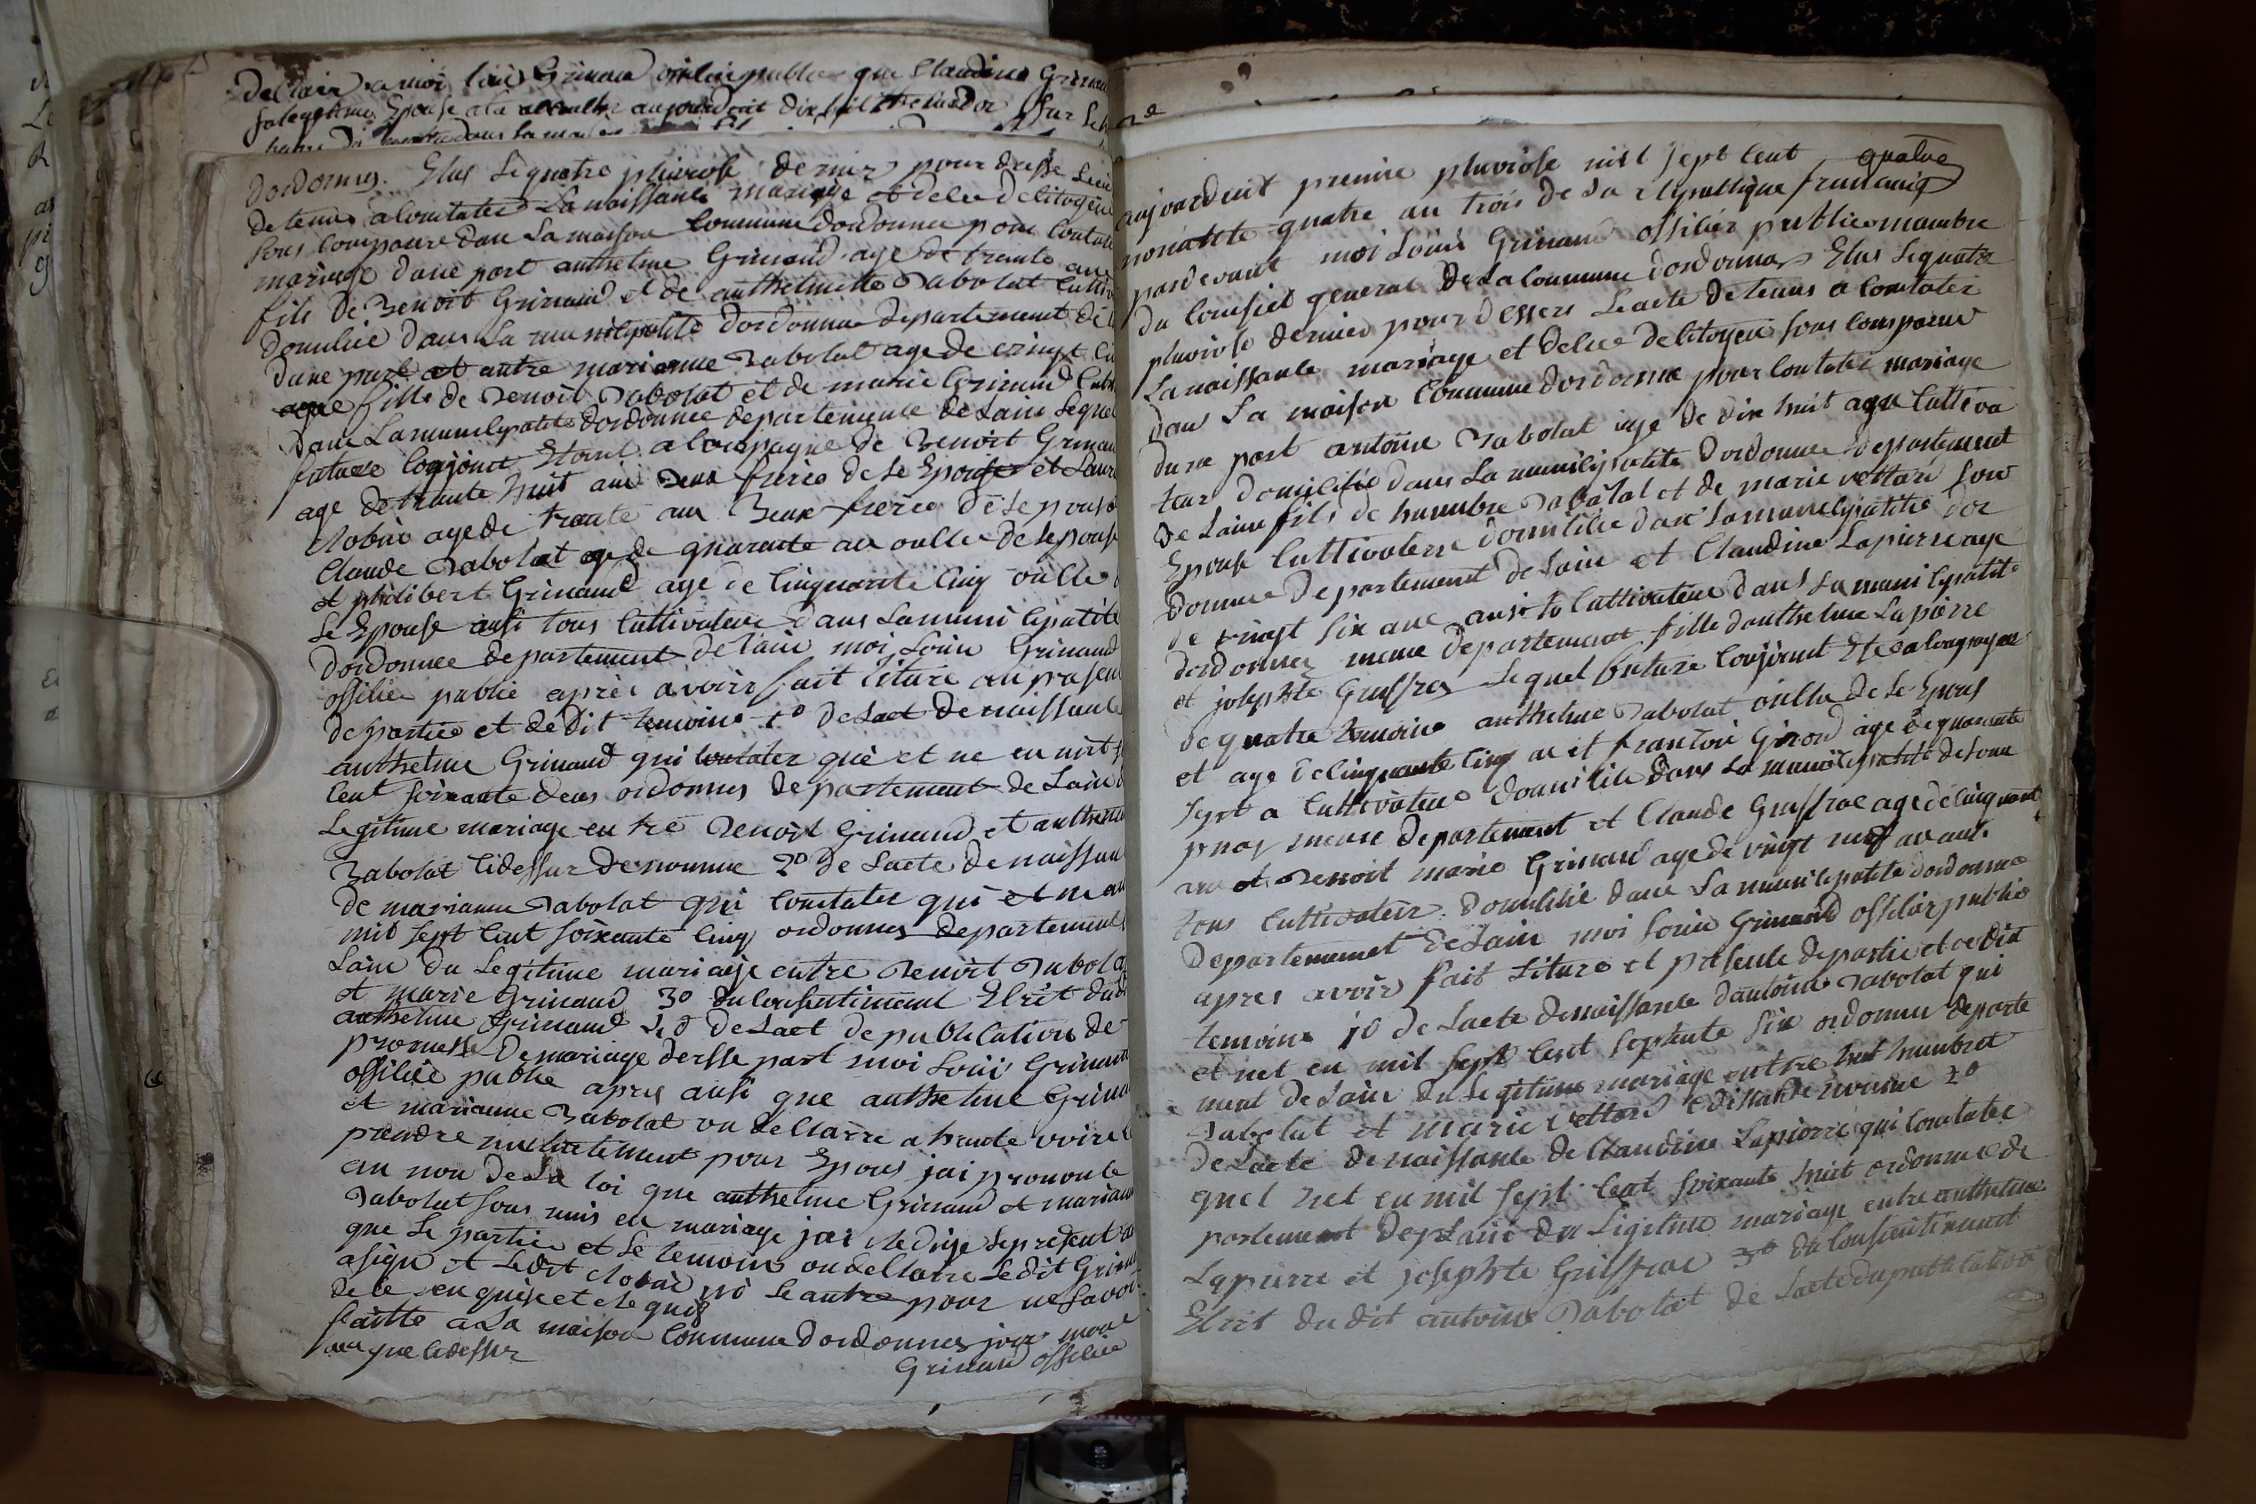 Declaré a moi Louis Grinand officier public que Claudine Grinan
sa legitime Epouse a la
dordonnes. Elus Le quatre pluviose dernier pour dresse Lacte
de tenus a Contater La naissance mariage et delce delitoÿen
sous Comparue dans La maison Commune dordonnee pour Contate
mariage dune part anthelme Grinand age de trente an
fils de Benoit Grinand et de anthelmette Rabolat Cultiv
domilié dans La municipalité dordonnee departement de l
dune part et autre marianne Rabolat age de vingt
fille de Benoit Rabolat et de marie Grinand Cult
dans La municipalité dordonnee departemente de Lain Lequel
future Conjoint Etant a Compagné de Benoit Grinan
age de trante huit ans Beux frère de Le Epouse et Laur
age de trante ans Beux frère de Le pouse
Claude Rabolat age de quarante an oncle de Le pouse
et philibert Grinand age de Cinquante Cinq oncle
Le Epouse ausi tous Cultivateur dans Lamunicipalité
dordonnee departement de lain moi Louis Grinand
officie public après avoir fait liture en presen
de partie et de dit temoins 1º de Lact de naissance
anthelme Grinand qui Contater que et ne en mil s
Cent soixante deus ordonnes departement de Lain d
Legitime mariage entre Benoit Grinand et anthelme
Rabolat Cidessur denomme 2º de Lacte de naissan
de marianne Rabolat qui Contater qui et ne an
mil sept Cent soixante Cinq ordonnes departement
Lain du Legitime mariage entre Benoit Rabolat
et marie Grinand 3º du Consentiment Ecrit du
anthelme Grinand de Lact de publication de
promesse de mariage dresse part moi Louis Grinand
officie public apres ausi que anthelme Grina
et marianne Rabolat on declarre a haute voire
prendre mutuelement pour Epous jai prononce
au non de La loi que anthelme Grinand et marian
Rabolat sous unis en mariage jai redige Le present
que Le partie et Le temoins on declare Le dit Grinan
asigne et Ledit no Le autre pour ne Savoi
de ce enquise et requis
faitte a La maison Commune dordonnes jour moi
an que Cidessur
Grinand officie
quatre
aujourduit premie pluviose mil sept Cent
nonante quatre an trois de La republique francaise
pardevant moi Louis Grinand officier public mambre
du Consiel general de La Commune dordonnas Elus Le quatre
pluviose dernier pour dessers Lacte detenus a Contater
La naissance mariage et delce delitoyen sous Comparue
dans La maison Commune dordonnee pour Contater mariage
dune part antoine Rabolat age de dix huit ans Cultiva
teur domicilié dans La municipalité dordonnee departement
de Lain fils de humbre Rabolat et de marie vettard son
Epouse Cultivateur domilié dans La municipalité dor
donnee departement de Lain et Claudine Lapierre age
de vingt six ans ausi Cultivateur dans La municipalité
dordonnes meme departement fille danthelme Lapierre
et josephte Guiffrey Lequel future Conjoint Ete a Compagne
de quatre temoins anthelme Rabolat oncle de Le Epous
et age de Cinquante Cinq an et francois Girod age de quarante
sept a Cultivateur domicilie dans La municipalité de
meme departement et Claude Guiffrae age de Cinquant
ans et Benoit marie Grinand age de vingt neuf an ausi
tous Cultivateur domilié dans La municipalité dordonnee
departemenet de Lain moi Louis Grinand officier public
apres avoir fait Liture et presente de partie et de dit
temoins 1º de Lacte de naissance dantoine Rabolat qui
et net en mil sept Cent septente six ordonnee departe
ment de Lain du Legitime mariage entre humbret
Rabolat et marie vettard Cidessus denomme 2º
de Lacte de naissance de Claudine Lapierre qui Contater
quel net en mil sept Cent soixante huit ordonnee de
partement de Lain du Legitime mariage entre anthelme
Lapierre et josephte Guiffrae 3º du Consentiment
Ecrit du dit antoine Rabolat de Lacte du publication